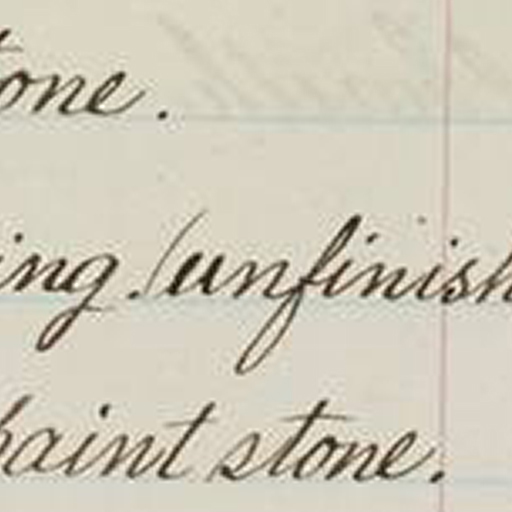 tone.
ing. (unfinish
paint stone.